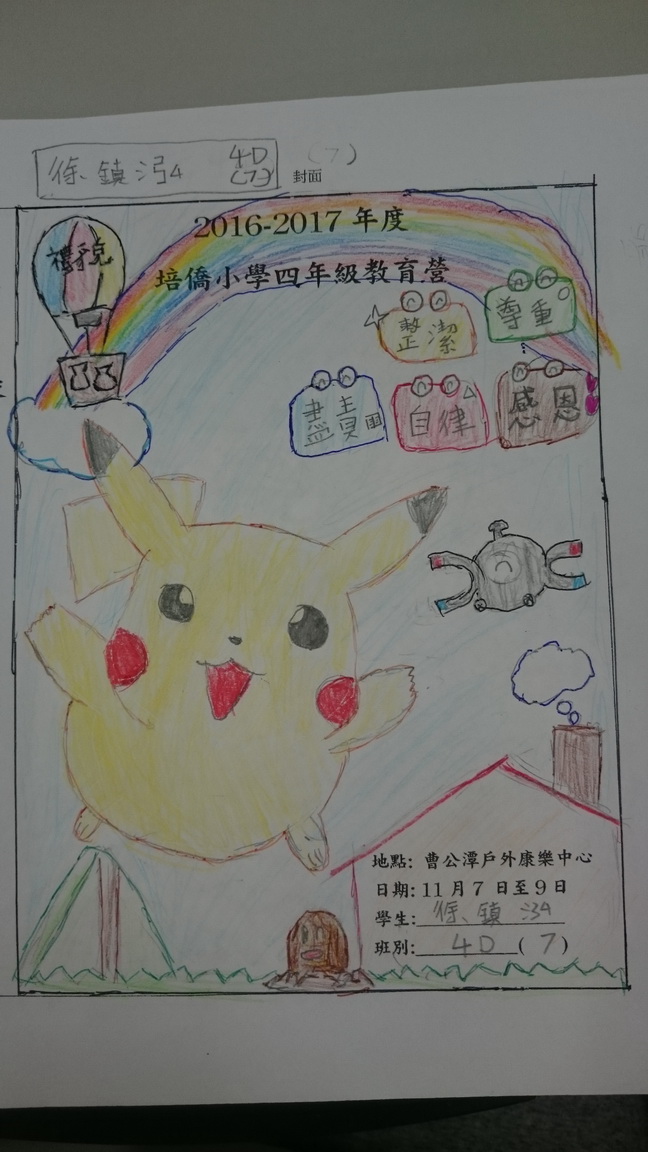 徐鎮
4D
(7)
(7)
封面
2016-2017 年度
禮貌
培僑小學四年級教育營
尊重
整潔
盡責
自律
感恩
地點: 曹公潭戶外康樂中心
日期: 11 月 7 日至 9 日
學生: 徐鎮
班別: 4D ( 7 )